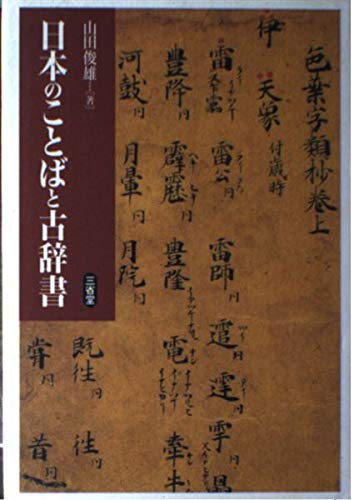 山田俊雄[著]
日本のことばと古辞書
三省堂
色葉字類抄巻上
伊
天象 付歳時
雷 雷公 雷師
豊隆 霹靂 豊隆 電 牽牛
河鼓同 月暈同 月院同
既往同 往同
昔同